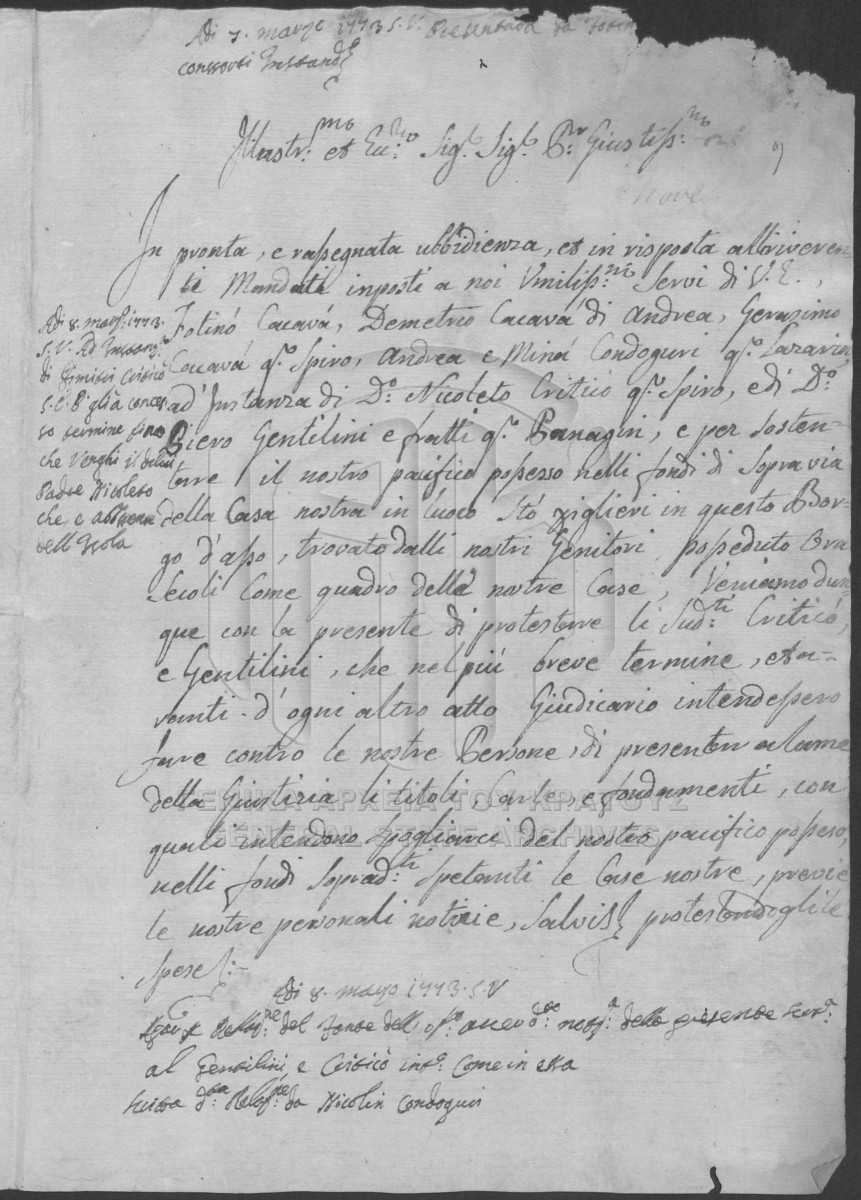 Adi 7. marzo 1773 S.V. Presentada da Fotin
consorti Instand.
Illustr.mo et Ecc.mo Sig.r Sig.r P.n Giustiss.mo
In pronta, e rassegnata ubbidienza, et in risposta alli riveren
ti Mandati inposti a noi Vmiliss.mi Servi di V.E.,
Fotinó Cacavá, Demetrio Cacavá di Andrea, Gerasimo
Cacavá q.m Spiro, Andrea e Miná Condoguri q.m Lazarin,
ad' Instanza di D.o Nicoleto Criticó q.m Spiro, e di D.o
Piero Gentilini e fratti q.m Panagin, e per sosten-
tare il nostro pacifico possesso nelli fondi di Sopra via
della Casa nostra in luoco Stó ziglieri in questo Bor-
go d'asso, trovato dalli nostri Genitori, posseduto Ora
Secoli come quadro della nostre Case, Veniamo dun-
que con la presente di protestare li Sud.ti Criticó,
e Gentilini, che nel piú breve termine, et a-
vanti d'ogni altro atto Giudicario intendessero
fare contro le nostre Persone, di presentar a lume
della Giustizia li titoli, Carte, e fondamenti, con
quali intendono spogliarci del nostro pacifico posseso,
nelli fondi Soprad.ti spetanti le Case nostre, previe
le nostre personali notizie, Salvis protestandogli le
spese:-
Adi 8. marzo 1773. S.V. Ad Instanz.
di Dimitri Criticò
S.E. P. gli à conces
so termine sino
che Venghi il di lui
Padre Nicoleto
che, e absente
dell'Isola
Adi 8. marzo 1773. S.V
del Fonte dell of.o aver notif.o della presente scrit.a
al Gentilini e Criticò int.o Come in essa
scritta d.ta Relaz.ne da Nicolin Condoguri
ΓΕΝΙΚΑ ΑΡΧΕΙΑ ΤΟΥ ΚΡΑΤΟΥΣ
GENERAL STATE ARCHIVES